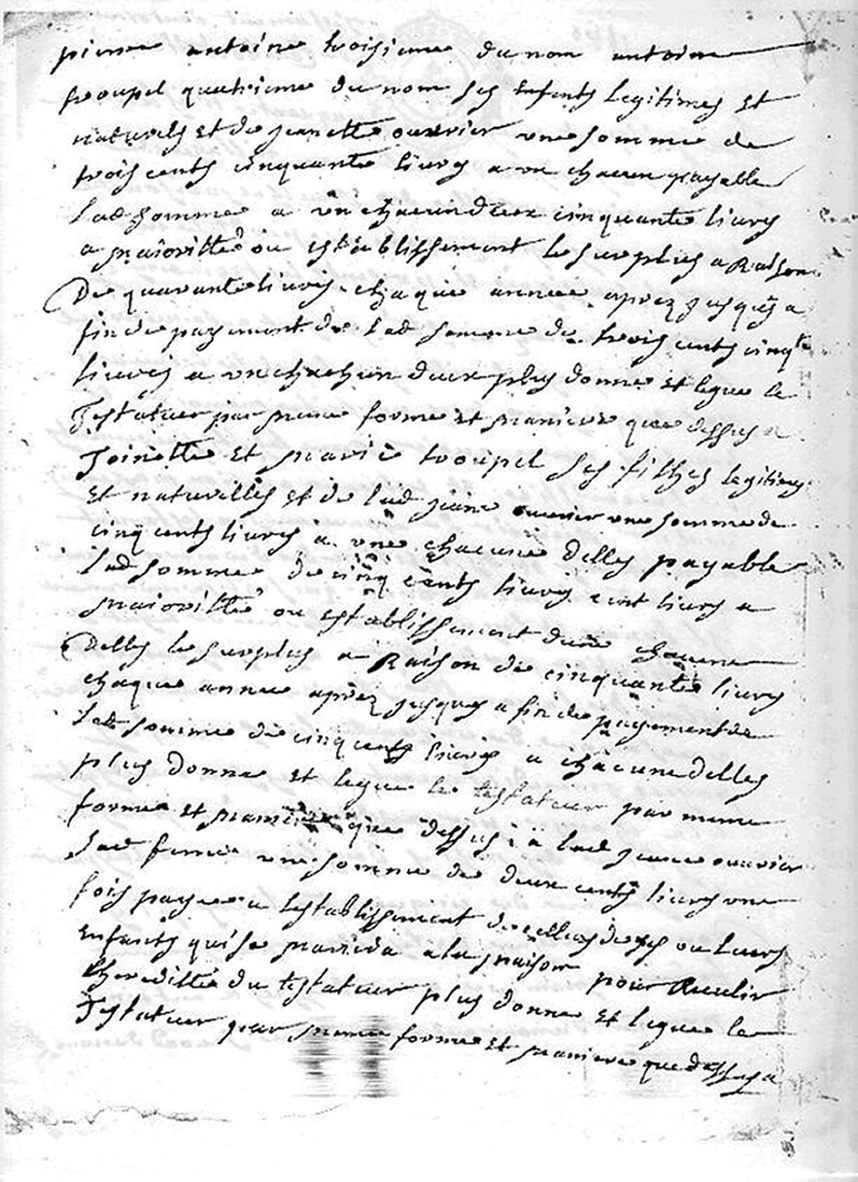 pierre antoine troisieme du nom antoine
troupel quatrieme du nom ses enfents legitimes et
naturels et de jeanette ouvrier une somme de
trois cents cinquante livres a un chacun payable
lad somme a un chacun deux cinquante livres
a maioritté ou establissement le surplus a Raison
De quarante livres chaque annee aprez jusques a
fin de payement de lad somme de trois cents cinqte
livres a un chachun deux plus donne et legue le
Testateur par meme forme et maniere que dessus a
Toinette et marie troupel ses filhes legitimes
et naturelles et de lad jeane ouvrier une somme de
cinq cents livres a une chacune delles payable
lad somme de cinq cents livres cent livres a
maioritté ou establissement dune chacune
Delles le surplus a Raison de cinquante livres
chaque annee aprez jusques a fin de payement de
lad somme de cinq cents livres a chacune delles
plus donne et legue le testateur par meme
forme et maniere que dessus a lad jeane ouvrier
sad feme une somme de deux cents livres une
fois payee a lestablissement de celluy de ses ou leurs
enfants qui se mariera a la maison pour Reculir
lhereditte du testateur plus donne et legue le
Testateur par meme forme et maniere que dessus a